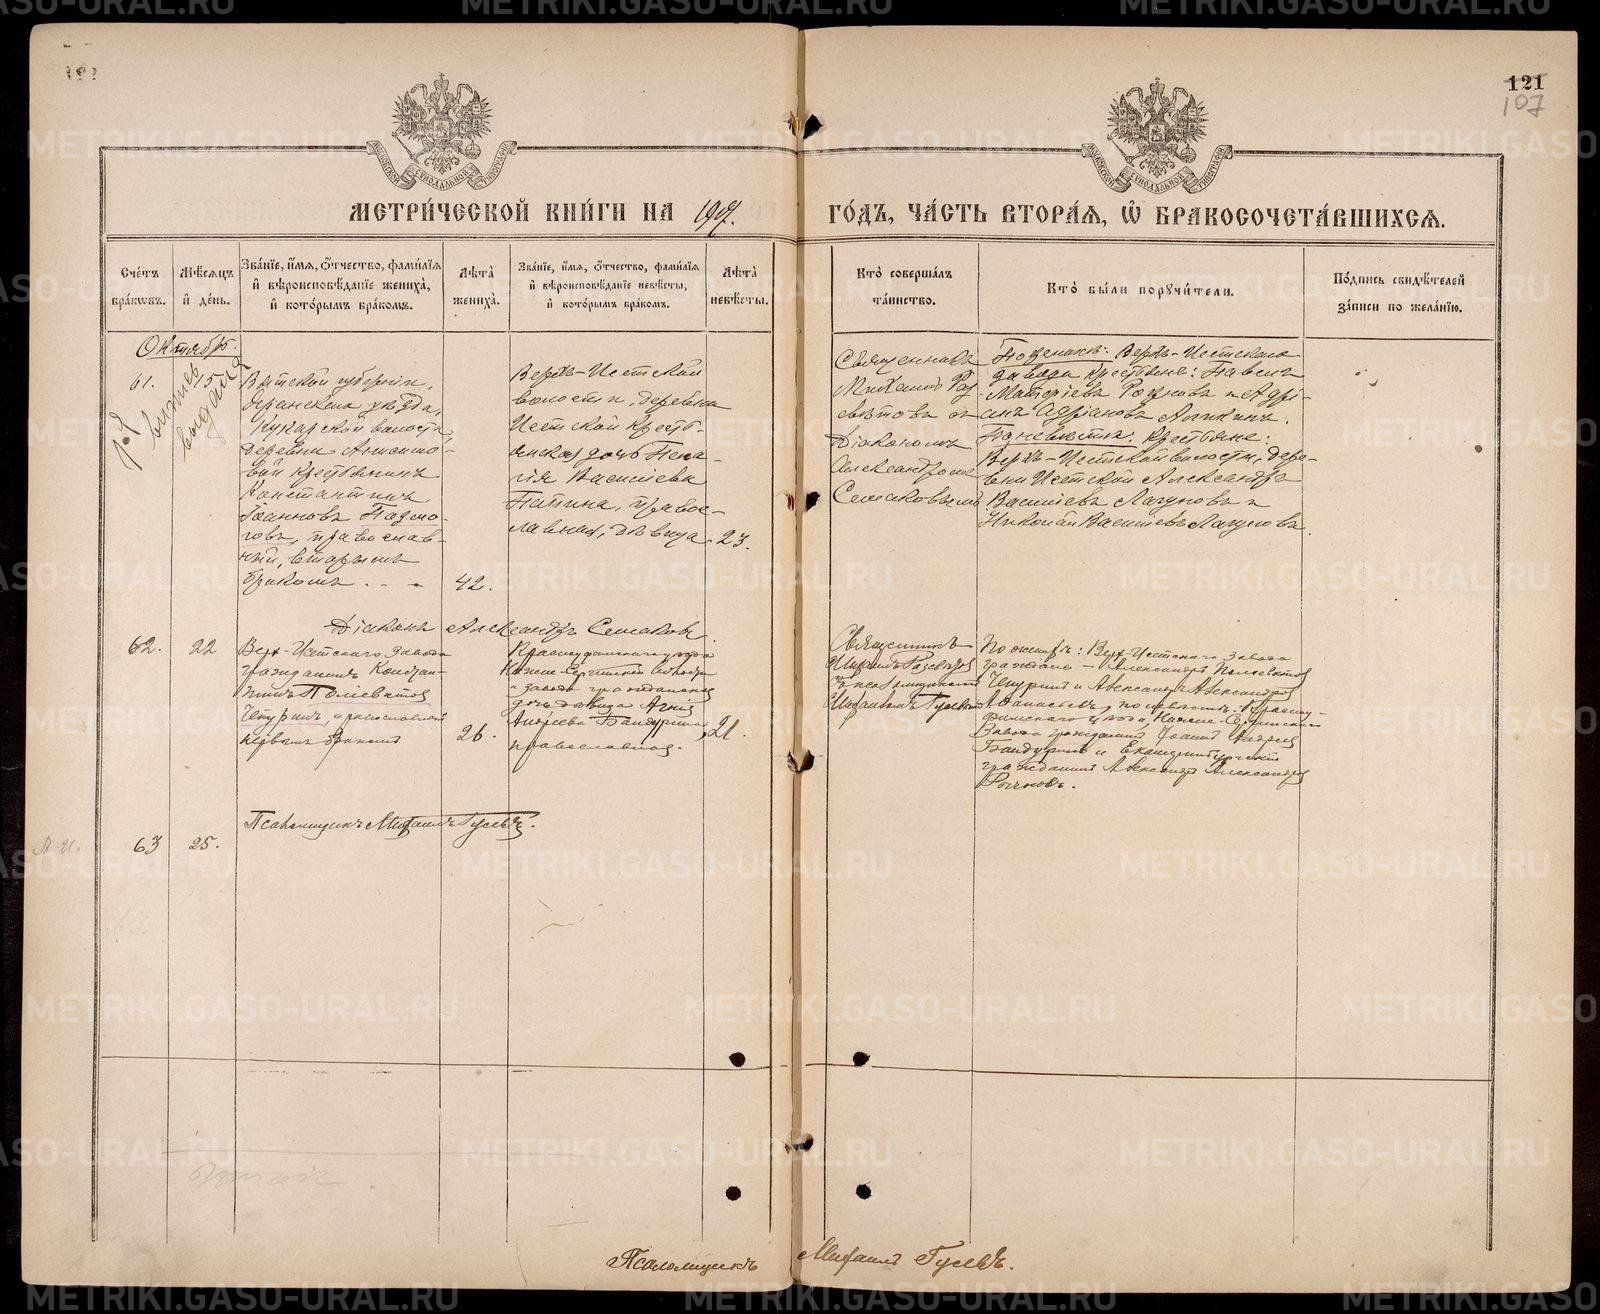 121
107
МЕТРИ́ЧЕСКОЙ КНИ́ГИ НА 1907. ГО́ДЪ, ЧА́СТЬ ВТОРА́Я, Ѡ҆ БРАКОСОЧЕТА́ВШИХСЯ.
Сче́тъ бра́ковъ.
Мѣ́сяцъ и҆ де́нь.
Зва́нїе, и҆́мя, ѻ҆́тчество, фами́лїя и҆ вѣроисповѣ́данїе жениха̀, и҆ кото́рымъ бра́комъ.
Лѣ́та жениха̀.
Зва́нїе, и҆́мя, ѻ҆́тчество, фами́лїя и҆ вѣроисповѣ́данїе невѣ́сты, и҆ кото́рымъ бра́комъ.
Лѣ́та невѣ́сты.
Кто̀ соверша́лъ та́инство.
Кто̀ бы́ли порꙋчи́тели.
По́дпись свидѣ́телей за́писи по жела́нїю.
Октябрь.
61.
15
Вятской губернiи,
Яранскаго уѣзда,
Кукарской волости,
деревни
крестьянинъ
Константинъ
Іоанновъ
православ-
ный, вторымъ
бракомъ
42.
Верхъ-Исетской
волости, деревни
Исетской кресть-
янская дочь Пела-
гiя Васильева
Папина, правос-
лавная, дѣвица
23.
Священникъ
Михаилъ
съ
Дiакономъ
Александромъ
Семаковымъ
По женихѣ: Верхъ-Исетскаго
завода крестьяне: Павелъ
Рогунов и Адрi-
анъ Адрiановъ Аникинъ.
По невѣстѣ: крестьяне:
Верхъ-Исетской волости, дере-
вни Исетской Александръ
Васильевъ Лагуновъ и
Николай Васильевъ Лагуновъ.
Дiаконъ Александръ Семаковъ.
62.
22
Верх-Исетскаго завода
гражданинъ Констан-
тинъ Полiевктовъ
Чепуринъ, православный
первымъ бракомъ
26.
Красноуфимскаго уѣзда
Нижне-Сергинскаго
завода гражданская
дочь дѣвица Агнiя
Андреева Бандурина,
православная.
21.
Священникъ
Михаилъ
псаломщикомъ
Михаиломъ Гусевымъ
По женихѣ: Верх-Исетскаго завода
граждане — Александръ Полiевктовъ
Чепуринъ и Александръ Александровъ
Афанасьевъ, по невѣстѣ: Красно-
уфимскаго уѣзда, Нижне-Сергинскаго
завода гражданинъ Іоаннъ Андреевъ
Бандуринъ и Екатеринбургскiй
гражданинъ Александръ Александровъ
Рычковъ.
Псаломщикъ Михаилъ Гусевъ.
63
25.
Псаломщикъ Михаилъ Гусевъ.
METRIKI.GASO-URAL.RU